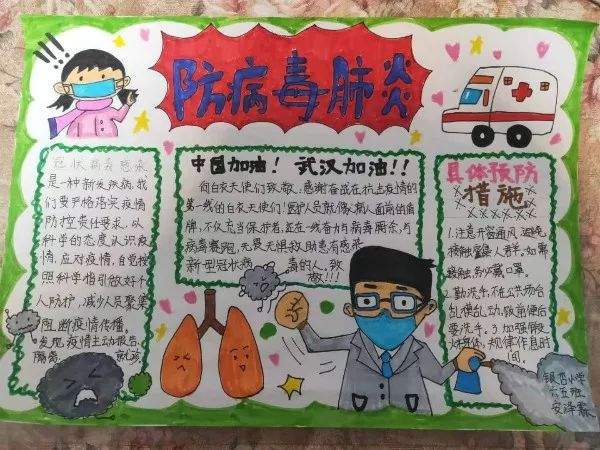 防病毒肺炎
冠状病毒感染
是一种新发疾病,我
们要严格落实疫情
防控责任要求,以
科学的态度认识疫
情,应对疫情,自觉按
照科学指引做好个
人防护,减少人员聚集
阻断疫情传播。
发现疫情主动报告,
隔离
中国加油! 武汉加油!!
向白衣天使们致敬,感谢奋战在抗击疫情的
第一线的白衣天使们!医护人员就像病人面前的盾
牌,不仅充当保护者,还在一线奋力与病毒厮杀,与
病毒赛跑,无畏无惧救助患有感染
新型冠状病 毒的人,致
敬!!!
具体预防
措施
1.注意开窗通风,避免
接触聚集人群,如需
接触,别忘戴口罩。
2.勤洗手,不在公共场合
乱摸乱动,敬前便后
要洗手。3.加强锻
炼身体,规律作息时
间。
银杏小学
六五班
安泽霖